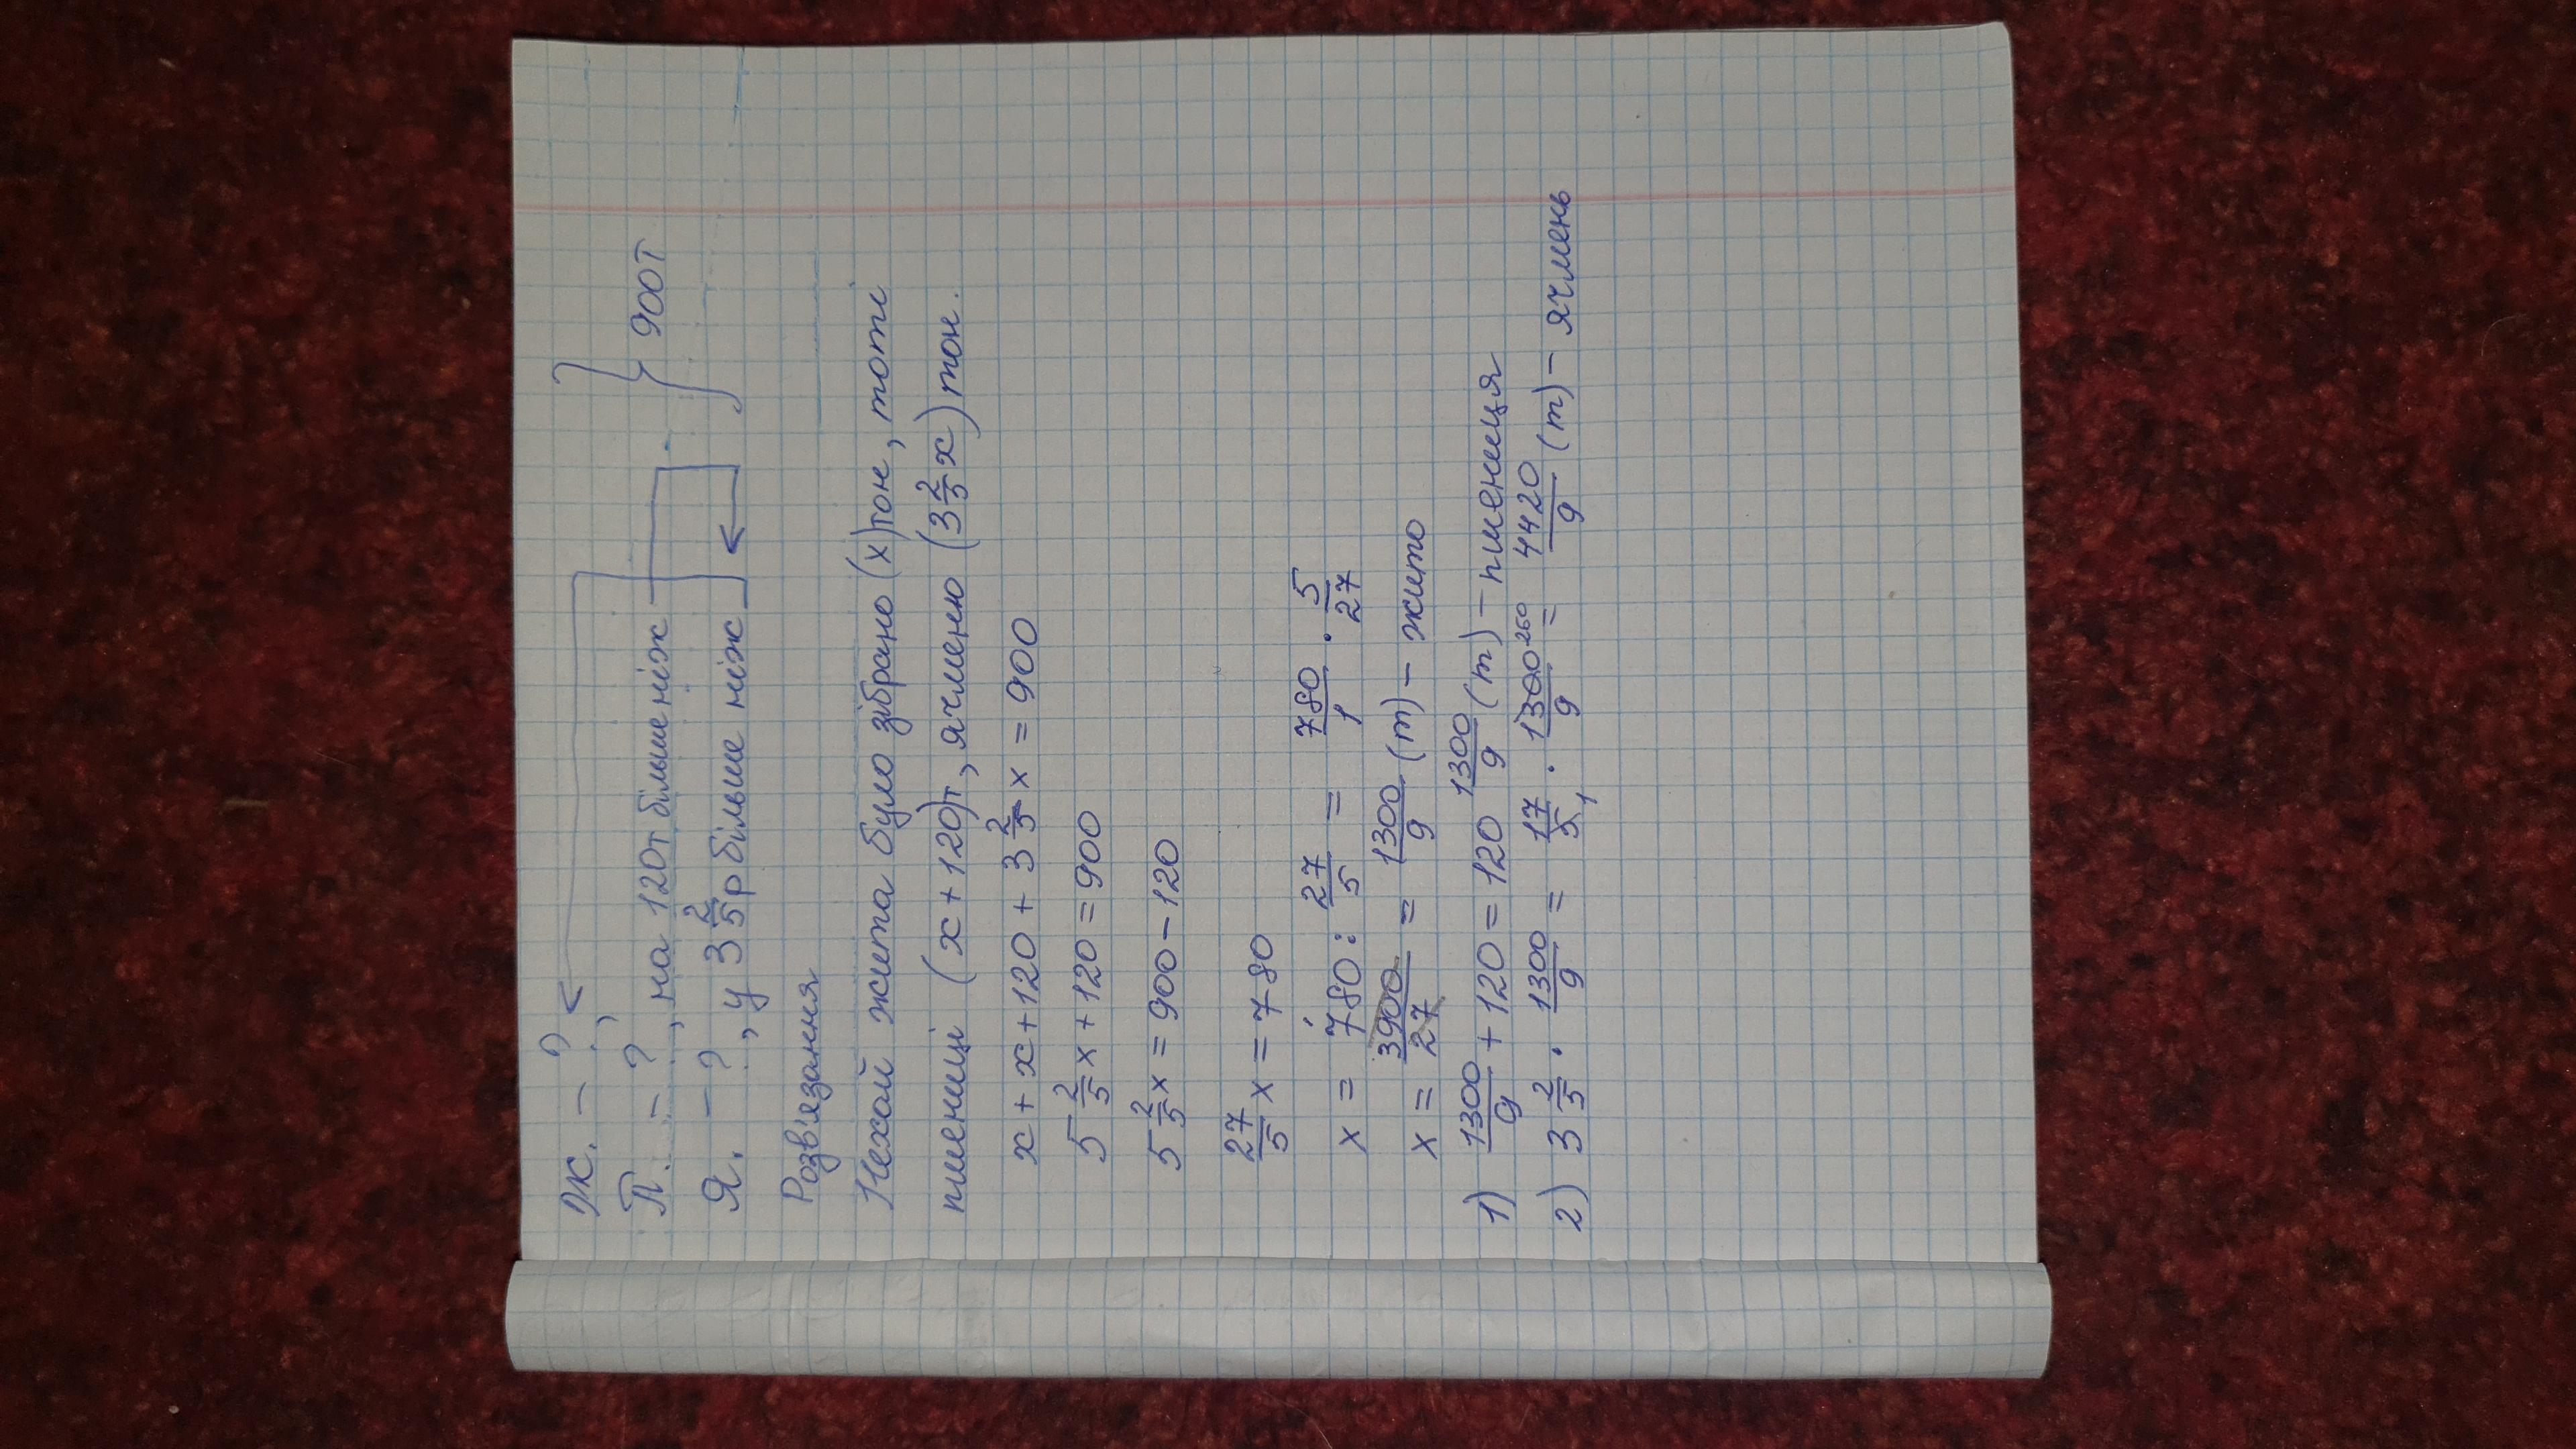 Ж. - ?,
П. - ?, на 120т більше ніж
900т
Я. - ?, у 3 2/5 р більше ніж
Розв'язання
Нехай жита було зібрано (x)тон, тоті
пшениці (x + 120)т, ячменю (3 2/5 x) тон.
x + x + 120 + 3 2/5 x = 900
5 2/5 x + 120 = 900
5 2/5 x = 900 - 120
27/5 x = 780
x = 780 : 27/5 = 780/1 · 5/27
x = 3900/27 = 1300/9 (т) - жито
1) 1300/9 + 120 = 120 1300/9 (т) - пшениця
2) 3 2/5 · 1300/9 = 17/5 1 · 1300 260/9 = 4420/9 (т) - ячмень